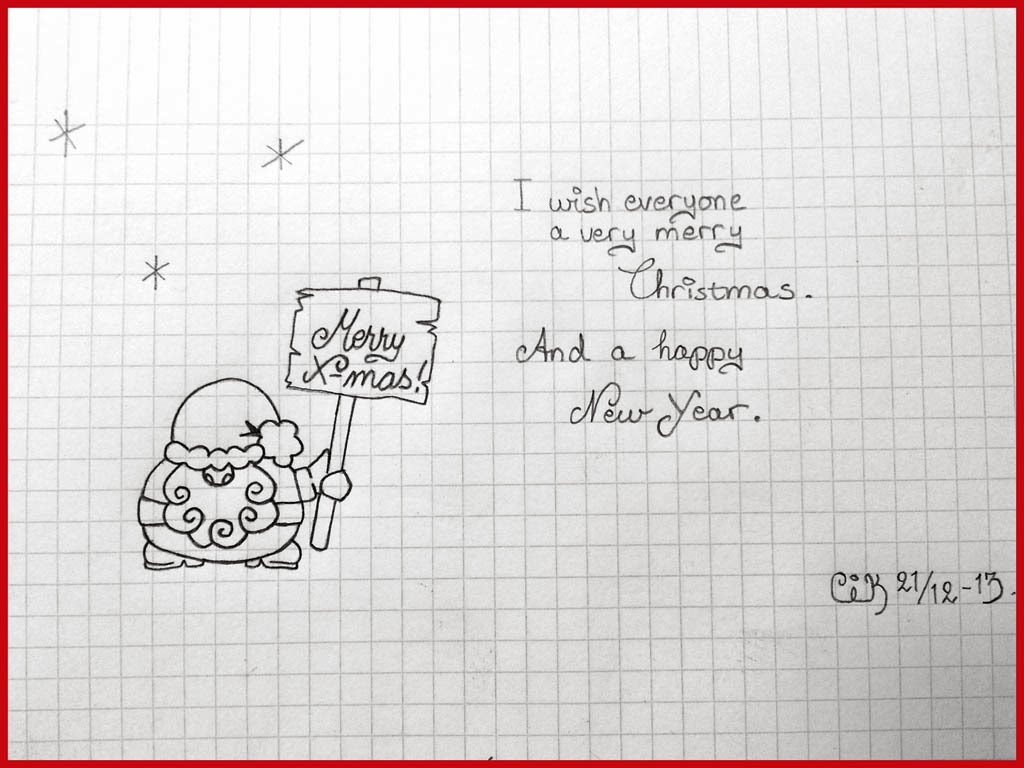 Merry
X-mas!
I wish everyone
a very merry
Christmas.
And a happy
New Year.
CiK 21/12-13.